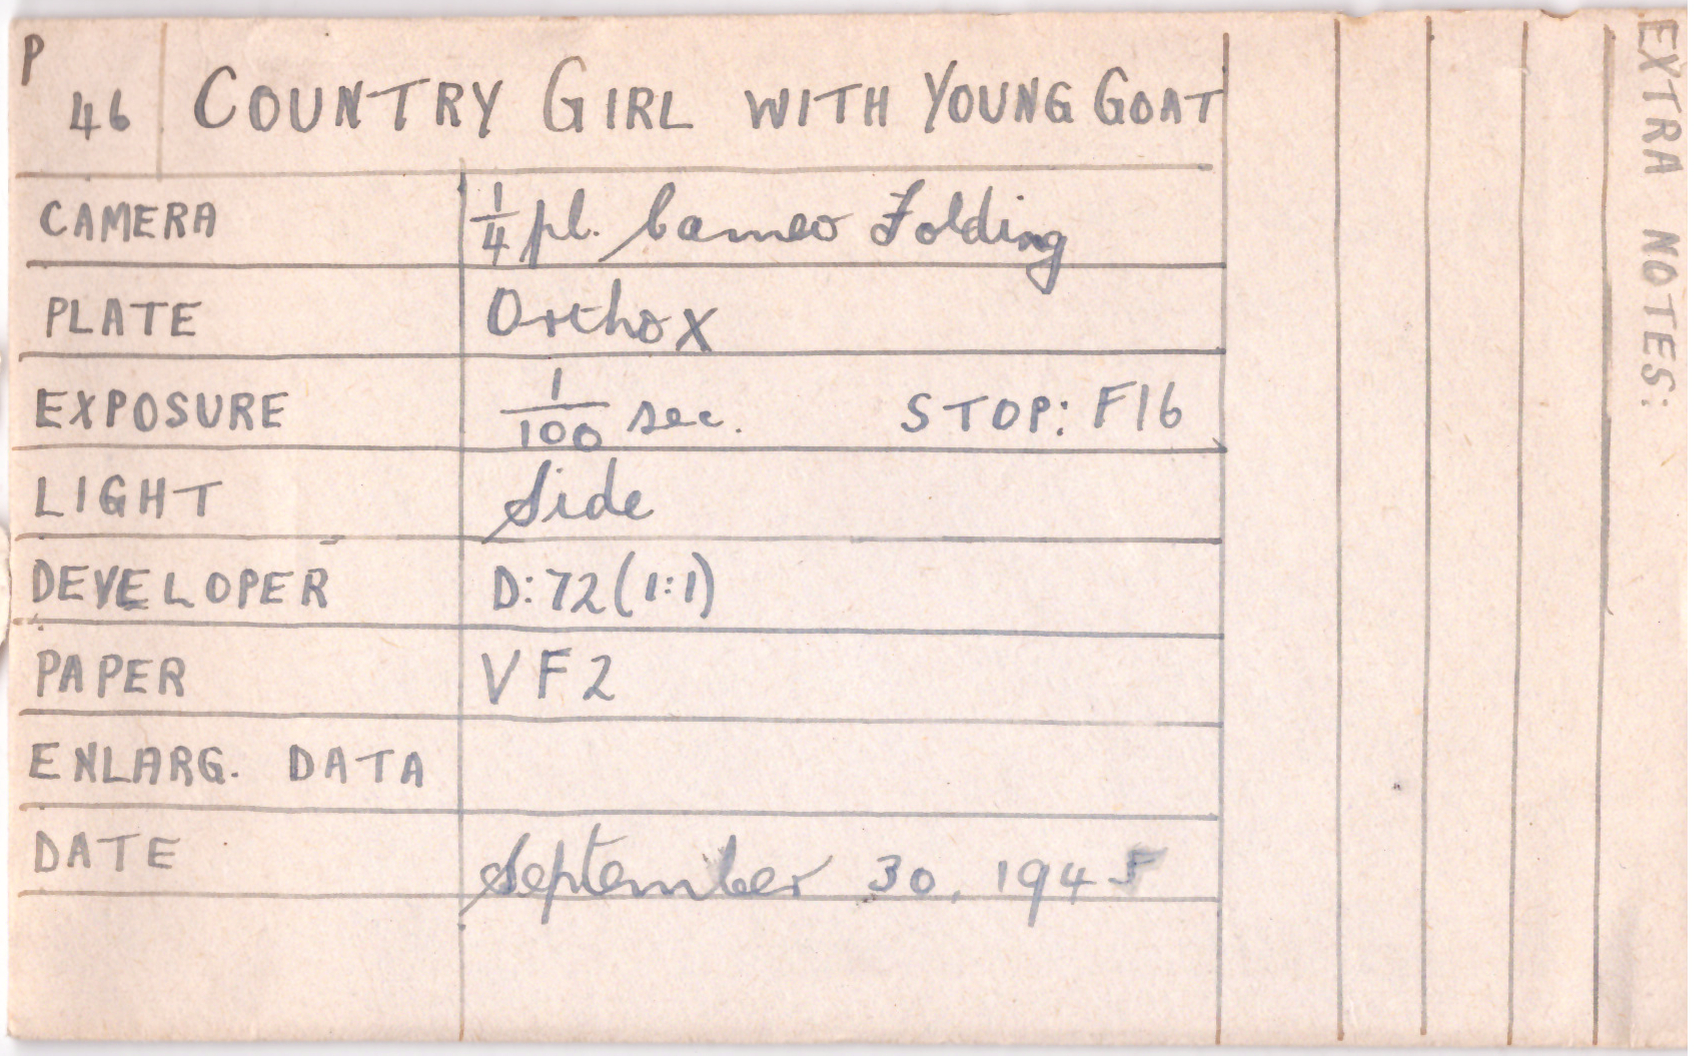 P
46 COUNTRY GIRL WITH YOUNG GOAT
CAMERA 1/4 pl. Cameo Folding
PLATE Orthox
EXPOSURE 1/100 sec. STOP: F16
LIGHT Side
DEVELOPER D:72 (1:1)
PAPER VF2
ENLARG. DATA
DATE September 30, 1945
EXTRA NOTES: